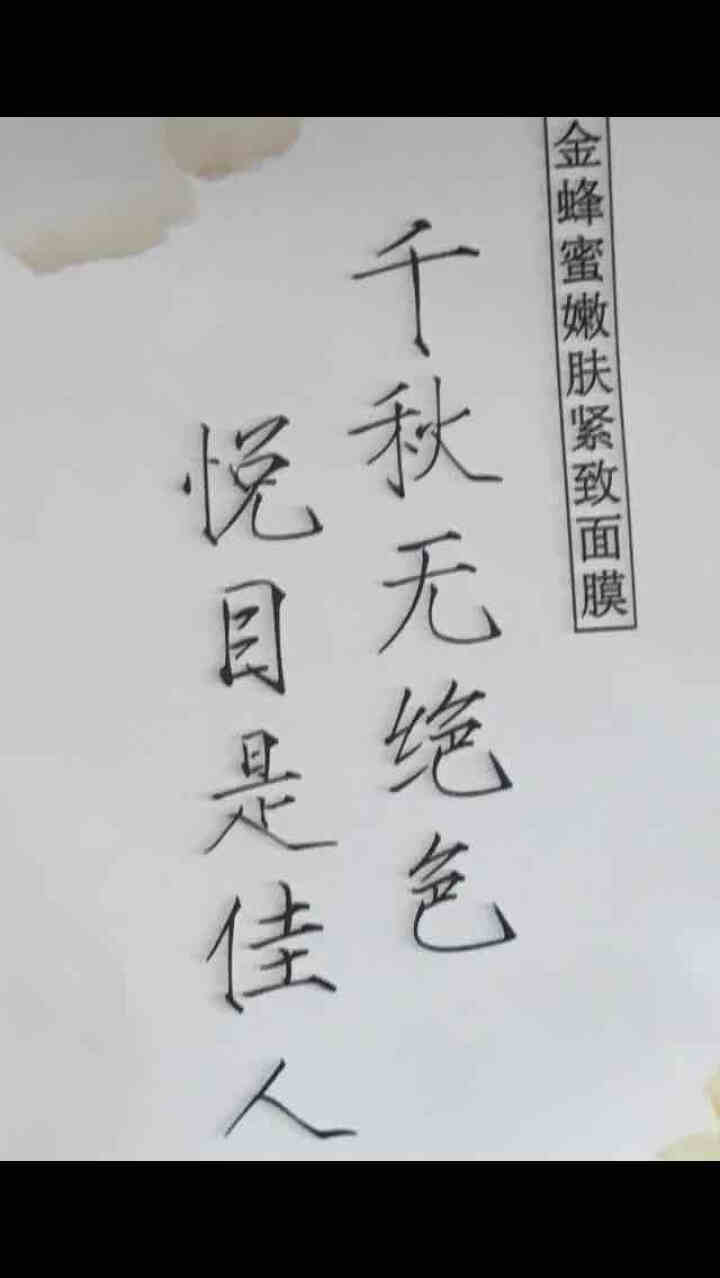 金蜂蜜嫩肤紧致面膜
千秋无绝色
悦目是佳人